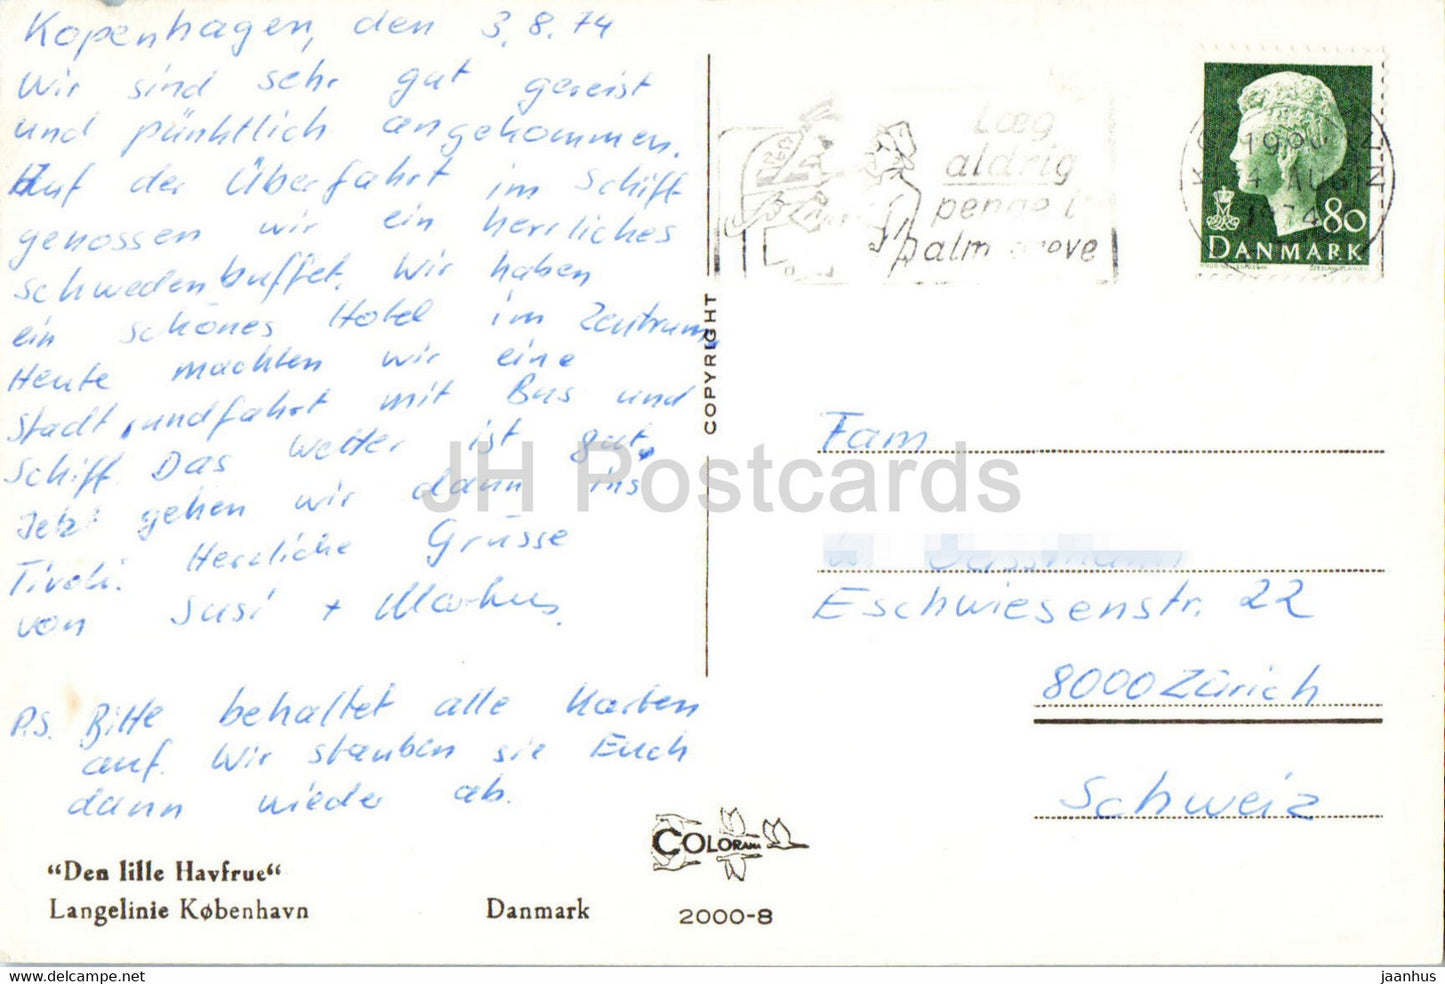 Kopenhagen, den 3.8.74
Wir sind sehr gut gereist
und pünktlich angekommen.
Auf der Überfahrt im Schiff
genossen wir ein herrliches
Schwedenbuffet. Wir haben
ein schönes Hotel im Zentrum.
Heute machten wir eine
Stadtrundfahrt mit Bus und
Schiff. Das Wetter ist gut.
Jetzt gehen wir dann ins
Tivoli. Herzliche Grüsse
von Susi + Markus.
P.S. Bitte behaltet alle Karten
auf. Wir stauben sie Euch
dann wieder ab.
"Den lille Havfrue"
Langelinie København
Danmark
COLORAMA
2000-8
COPYRIGHT
Læg
aldrig
penge i
palm
80
DANMARK
AUG
1974
Fam
Eschwiesenstr. 22
8000 Zürich
Schweiz
JH Postcards
www.hipostcard.com
jaanhus